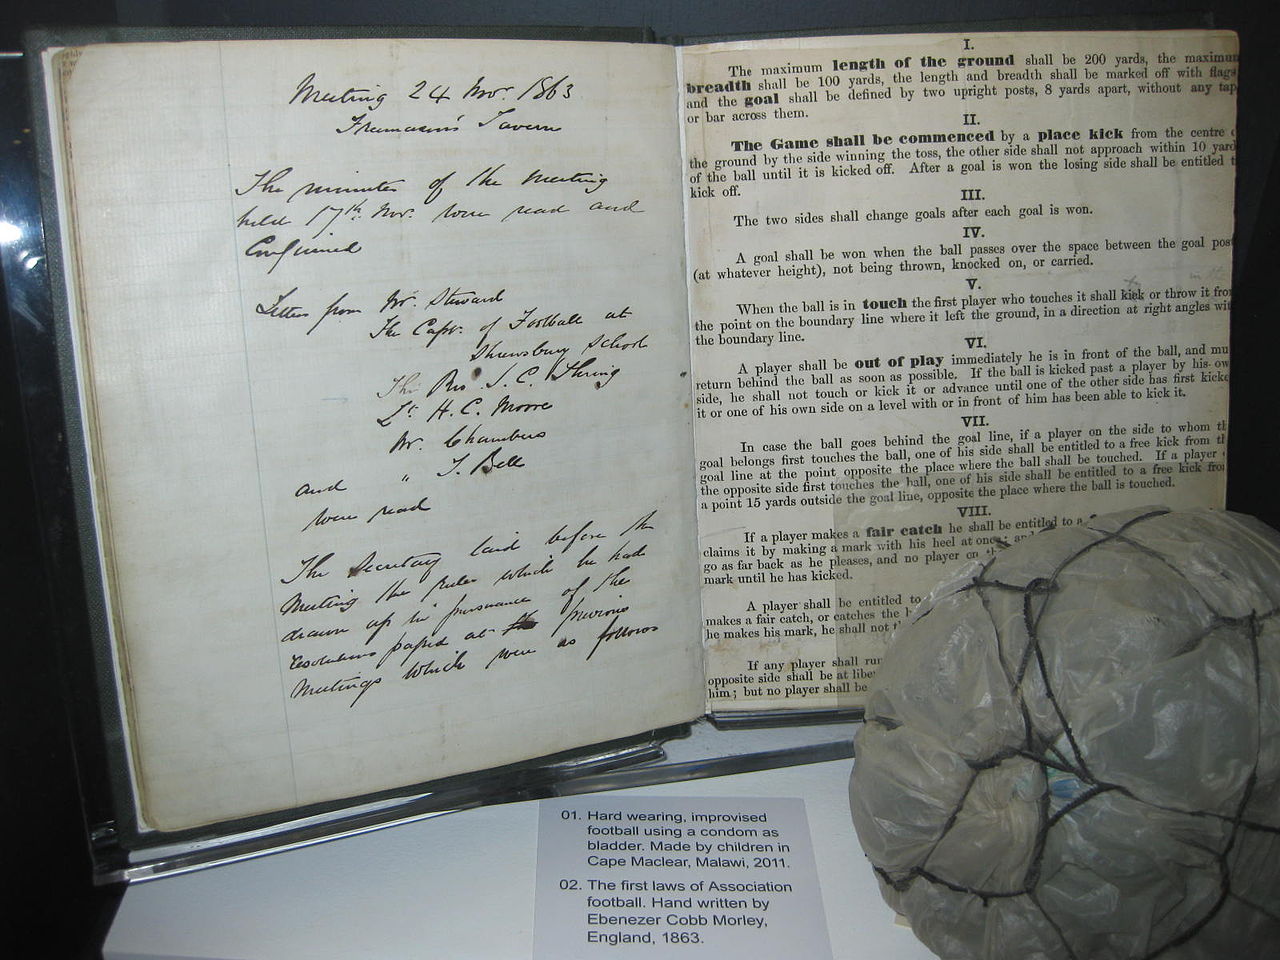 Meeting 24 Nov. 1863
Freemason's Tavern
The minutes of the meeting
held 17th Nov. were read and
Confirmed
Letters from Mr. Steward
The Captn. of Football at
Shrewsbury School
The Rev. J. C. Thring
Lt. H. C. Moore
Mr. Chambers
and " J. Bell
were read
The Secretary laid before the
Meeting the Rules which he had
drawn up in pursuance of the
resolutions passed at the previous
Meetings which were as follows
I.
The maximum length of the ground shall be 200 yards, the maximum
breadth shall be 100 yards, the length and breadth shall be marked off with flags
and the goal shall be defined by two upright posts, 8 yards apart, without any tap
or bar across them.
II.
The Game shall be commenced by a place kick from the centre o
the ground by the side winning the toss, the other side shall not approach within 10 yard
of the ball until it is kicked off. After a goal is won the losing side shall be entitled t
kick off.
III.
The two sides shall change goals after each goal is won.
IV.
A goal shall be won when the ball passes over the space between the goal post
(at whatever height), not being thrown, knocked on, or carried.
V.
When the ball is in touch the first player who touches it shall kick or throw it from
the point on the boundary line where it left the ground, in a direction at right angles wit
the boundary line.
VI.
A player shall be out of play immediately he is in front of the ball, and mu
return behind the ball as soon as possible. If the ball is kicked past a player by his ow
side, he shall not touch or kick it or advance until one of the other side has first kicke
it or one of his own side on a level with or in front of him has been able to kick it.
VII.
In case the ball goes behind the goal line, if a player on the side to whom th
goal belongs first touches the ball, one of his side shall be entitled to a free kick from th
goal line at the point opposite the place where the ball shall be touched. If a player
the opposite side first touches the ball, one of his side shall be entitled to a free kick from
a point 15 yards outside the goal line, opposite the place where the ball is touched.
VIII.
If a player makes a fair catch he shall be entitled to a
claims it by making a mark with his heel at once; and
go as far back as he pleases, and no player on
mark until he has kicked.
A player shall be entitled to
makes a fair catch, or catches the
he makes his mark, he shall not
If any player shall run
opposite side shall be at liber
him; but no player shall be
01. Hard wearing, improvised
football using a condom as
bladder. Made by children in
Cape Maclear, Malawi, 2011.
02. The first laws of Association
football. Hand written by
Ebenezer Cobb Morley,
England, 1863.